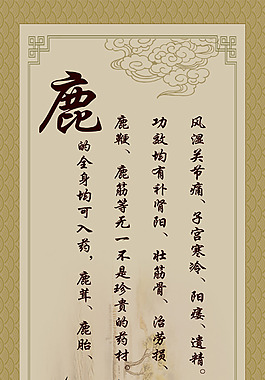 鹿
的全身均可入药，鹿茸、鹿胎、
鹿鞭、鹿筋等无一不是珍贵的药材。
功效均有补肾阳、壮筋骨、治劳损、
风湿关节痛、子宫寒冷、阳痿、遗精。